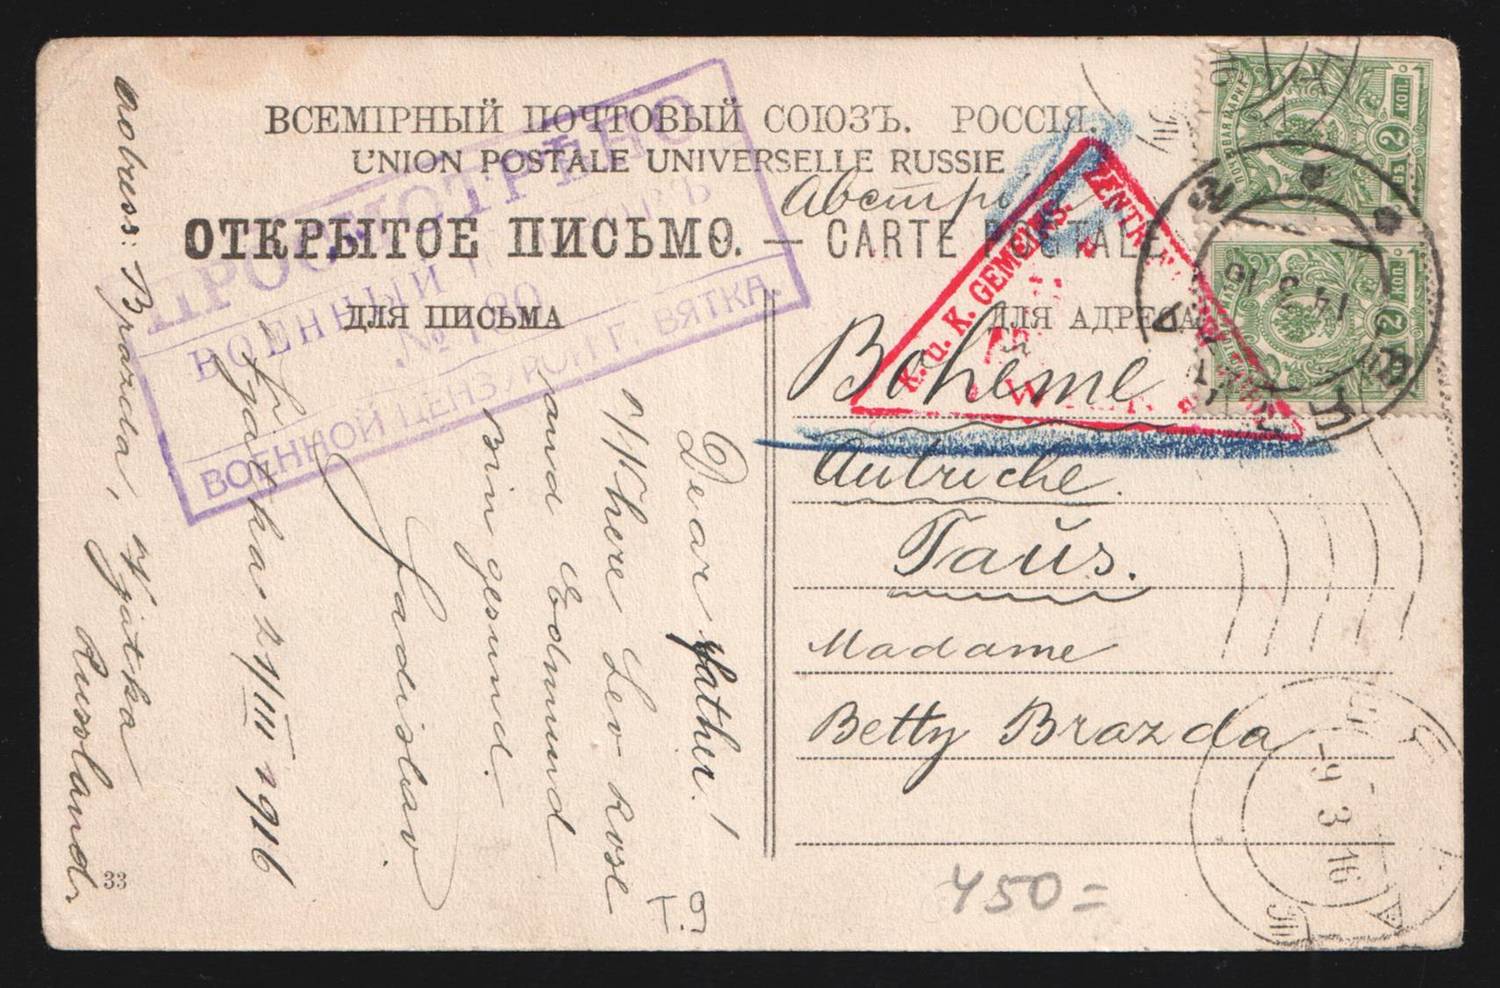 ВСЕМІРНЫЙ ПОЧТОВЫЙ СОЮЗЪ. РОССІЯ.
UNION POSTALE UNIVERSELLE RUSSIE
ОТКРЫТОЕ ПИСЬМО. — CARTE POSTALE
ДЛЯ ПИСЬМА
ДЛЯ АДРЕСА
ПРОСМОТРЕНО
ВОЕННЫЙ
№
ВОЕННОЙ ЦЕНЗУРОЙ Г. ВЯТКА.
K. u. K. GEMEINS.
ZENTR
2 КОП.
2 КОП.
14 3 16
-9 3 16
Bohême
Autriche.
Taus.
Madame
Betty Brazda
Dear father!
Where Leo Rose
and Edmund
Bin gesund.
Ladislav.
Vjatka 21/III 1916
Adress: Brazda, Vjatka
Russland
33
450=